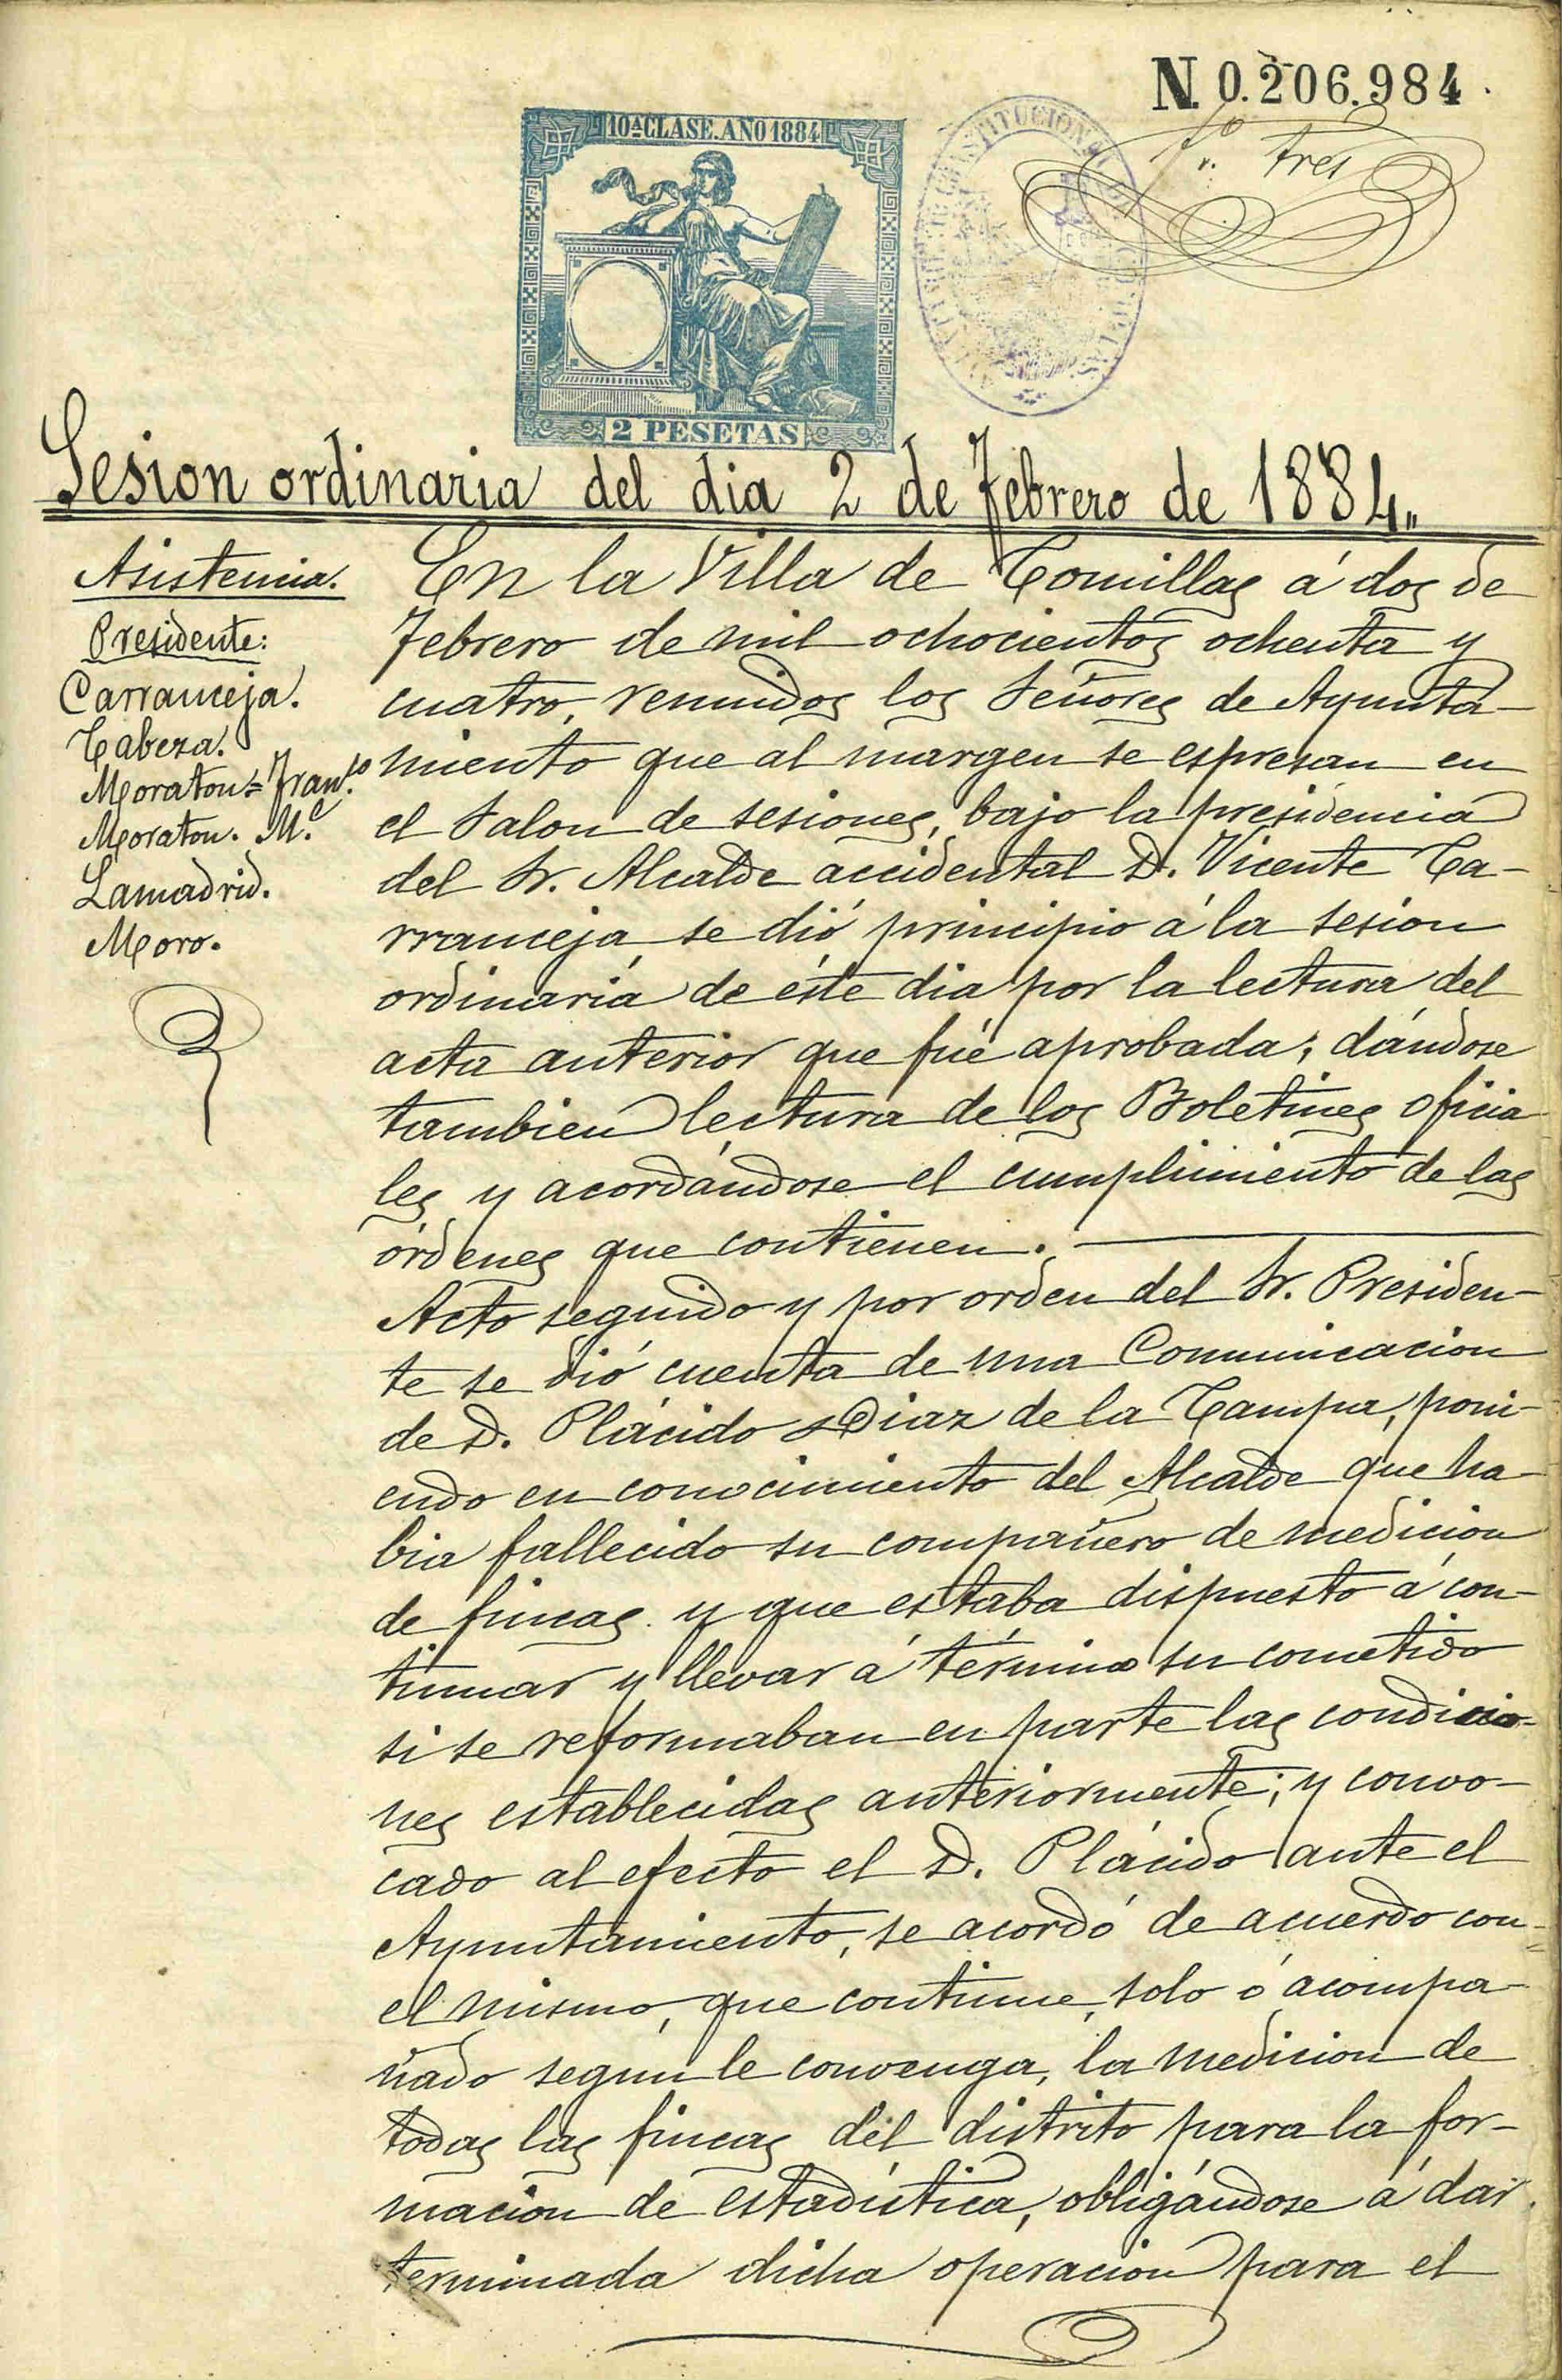 N. 0.206.984
fº. tres
10ª CLASE. AÑO 1884
2 PESETAS
Sesion ordinaria del dia 2 de Febrero de 1884„
Asistencia.
Presidente:
Carranceja.
Cabeza.
Moraton = Franco.
Moraton. M.l
Lamadrid.
Moro.
En la Villa de Comillas á dos de
Febrero de mil ochocientos ochenta y
cuatro, reunidos los Señores de Ayunta-
miento que al margen se espresan en
el Salon de sesiones, bajo la presidencia
del Sr. Alcalde accidental D. Vicente Ca-
rranceja, se dió principio á la sesion
ordinaria de éste dia por la lectura del
acta anterior que fué aprobada; dándose
tambien lectura de los Boletines oficia
les y acordándose el cumplimiento de las
órdenes que contienen.
Acto seguido y por orden del Sr. Presiden-
te se dió cuenta de una Comunicacion
de D. Plácido Diaz de la Campa, poni-
endo en conocimiento del Alcalde que ha-
bia fallecido su compañero de medicion
de fincas y que estaba dispuesto á con-
tinuar y llevar á término su cometido
si se reformaban en parte las condicio-
nes establecidas anteriormente; y convo-
cado al efecto el D. Plácido ante el
Ayuntamiento, se acordó de acuerdo con
el mismo, que continue, solo ó acompa-
ñado segun le convenga, la medicion de
todas las fincas del distrito para la for-
macion de estadística, obligándose á dar
terminada dicha operacion para el